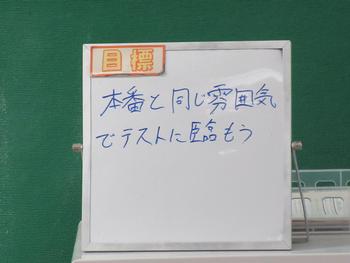 目標
本番と同じ雰囲気
でテストに臨もう